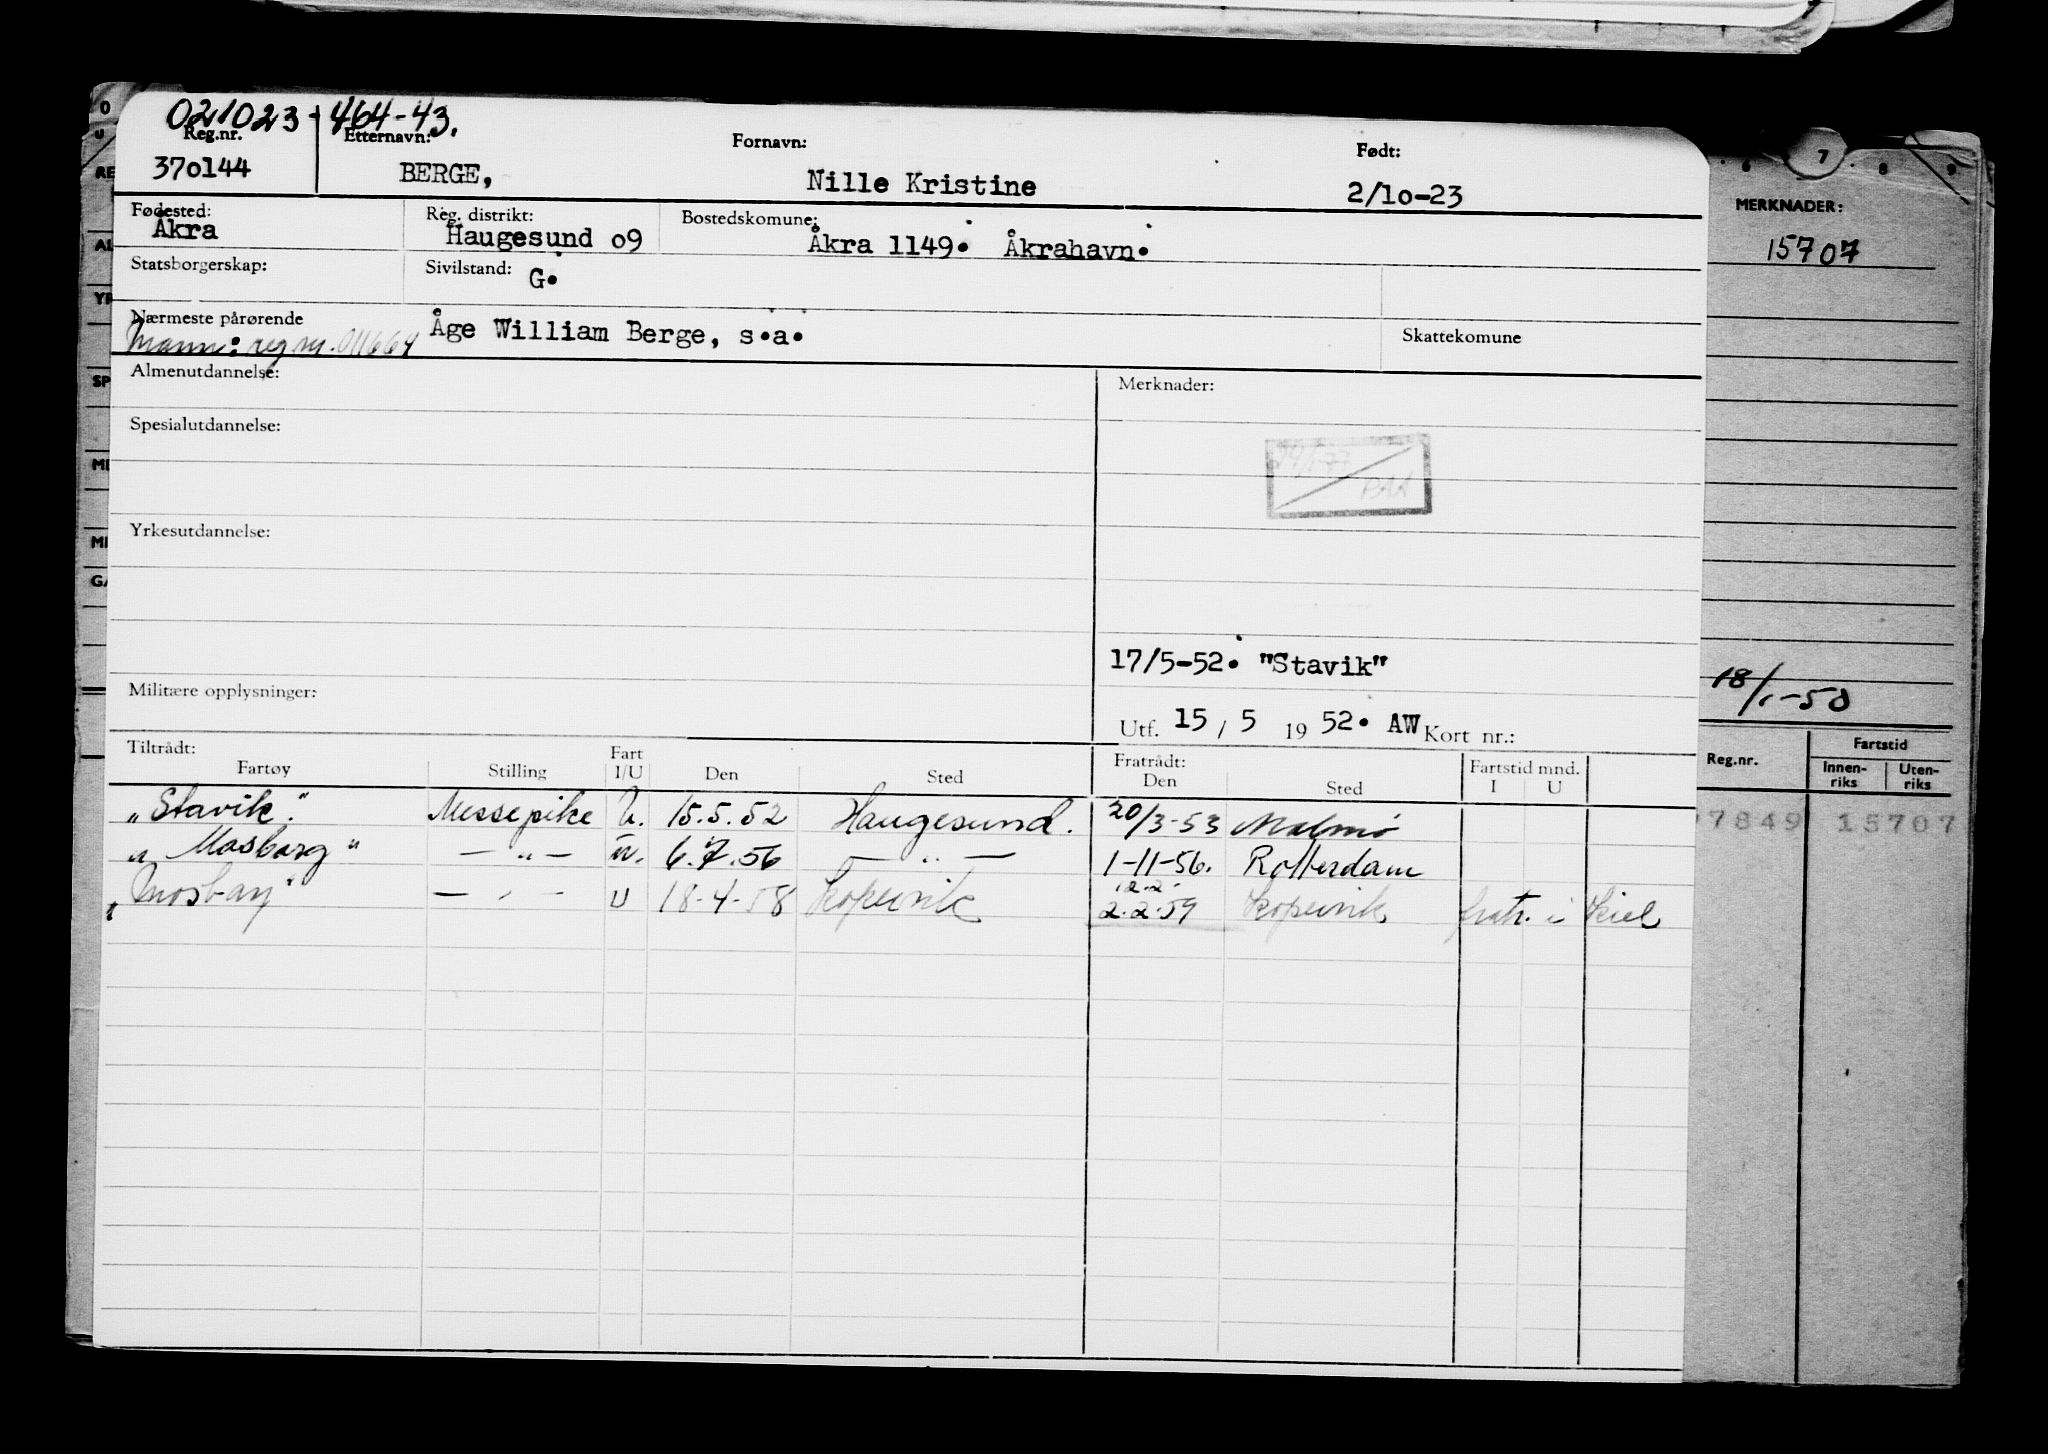 021023-464-43.
Reg.nr. Etternavn: Fornavn: Født:
370144 BERGE, Nille Kristine 2/10-23
Fødested: Reg. distrikt: Bostedskomune:
Åkra Haugesund 09 Åkra 1149. Åkrahavn.
Statsborgerskap: Sivilstand: G.
Nærmeste pårørende Åge William Berge, s.a. Skattekomune
Mann: reg nr. 011664
Almenutdannelse: Merknader:
Spesialutdannelse:
PAA
Yrkesutdannelse:
17/5-52. "Stavik"
Militære opplysninger:
Utf. 15 / 5 19 52. AW Kort nr.:
Tiltrådt: Fart Fratrådt: Fartstid mnd.
Fartøy Stilling I/U Den Sted Den Sted I U
"Stavik". Messepike U. 15.5.52 Haugesund. 20/3-53 Malmø
" Mosborg " — " — u. 6.7.56 — " — 1-11-56. Rotterdam
12.2.
" — U 18-4-58 Kopervik 2.2.59 Kopervik fratr. i Kiel
0
U
RE
AL
YR
SP
MI
MI
GA
6 7 8 9
MERKNADER:
15707
18/1-50
Reg.nr. Fartstid
Innen-riks Uten-riks
7849 15707